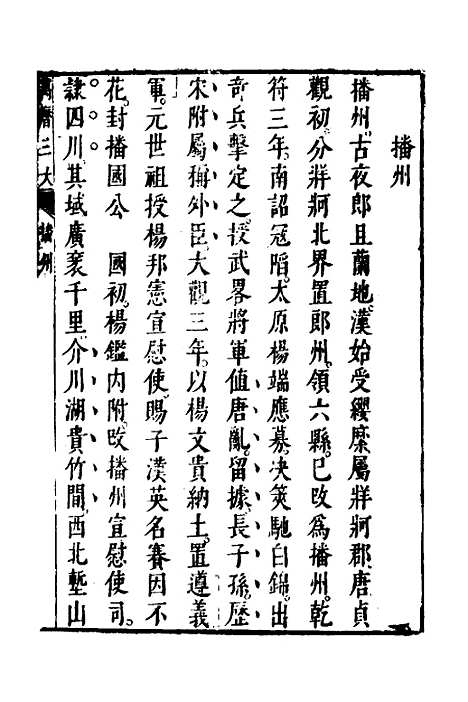 播州
播州古夜郎且蘭地漢始受纓縻屬牂牁郡唐貞
觀初分牂牁北界置郎州領六縣已改為播州乾
符三年南詔冦陷太原楊端應募决筴馳白錦出
竒兵擊定之授武畧將軍值唐亂留據長子孫歷
宋附屬稱外臣大觀三年以楊文貴納土置遵義
軍元世祖授楊邦憲宣慰使賜子漢英名賽因不
花封播國公　國初楊鑑内附改播州宣慰使司
隷四川其域廣袤千里介川湖貴竹間西北塹山
三大　播州